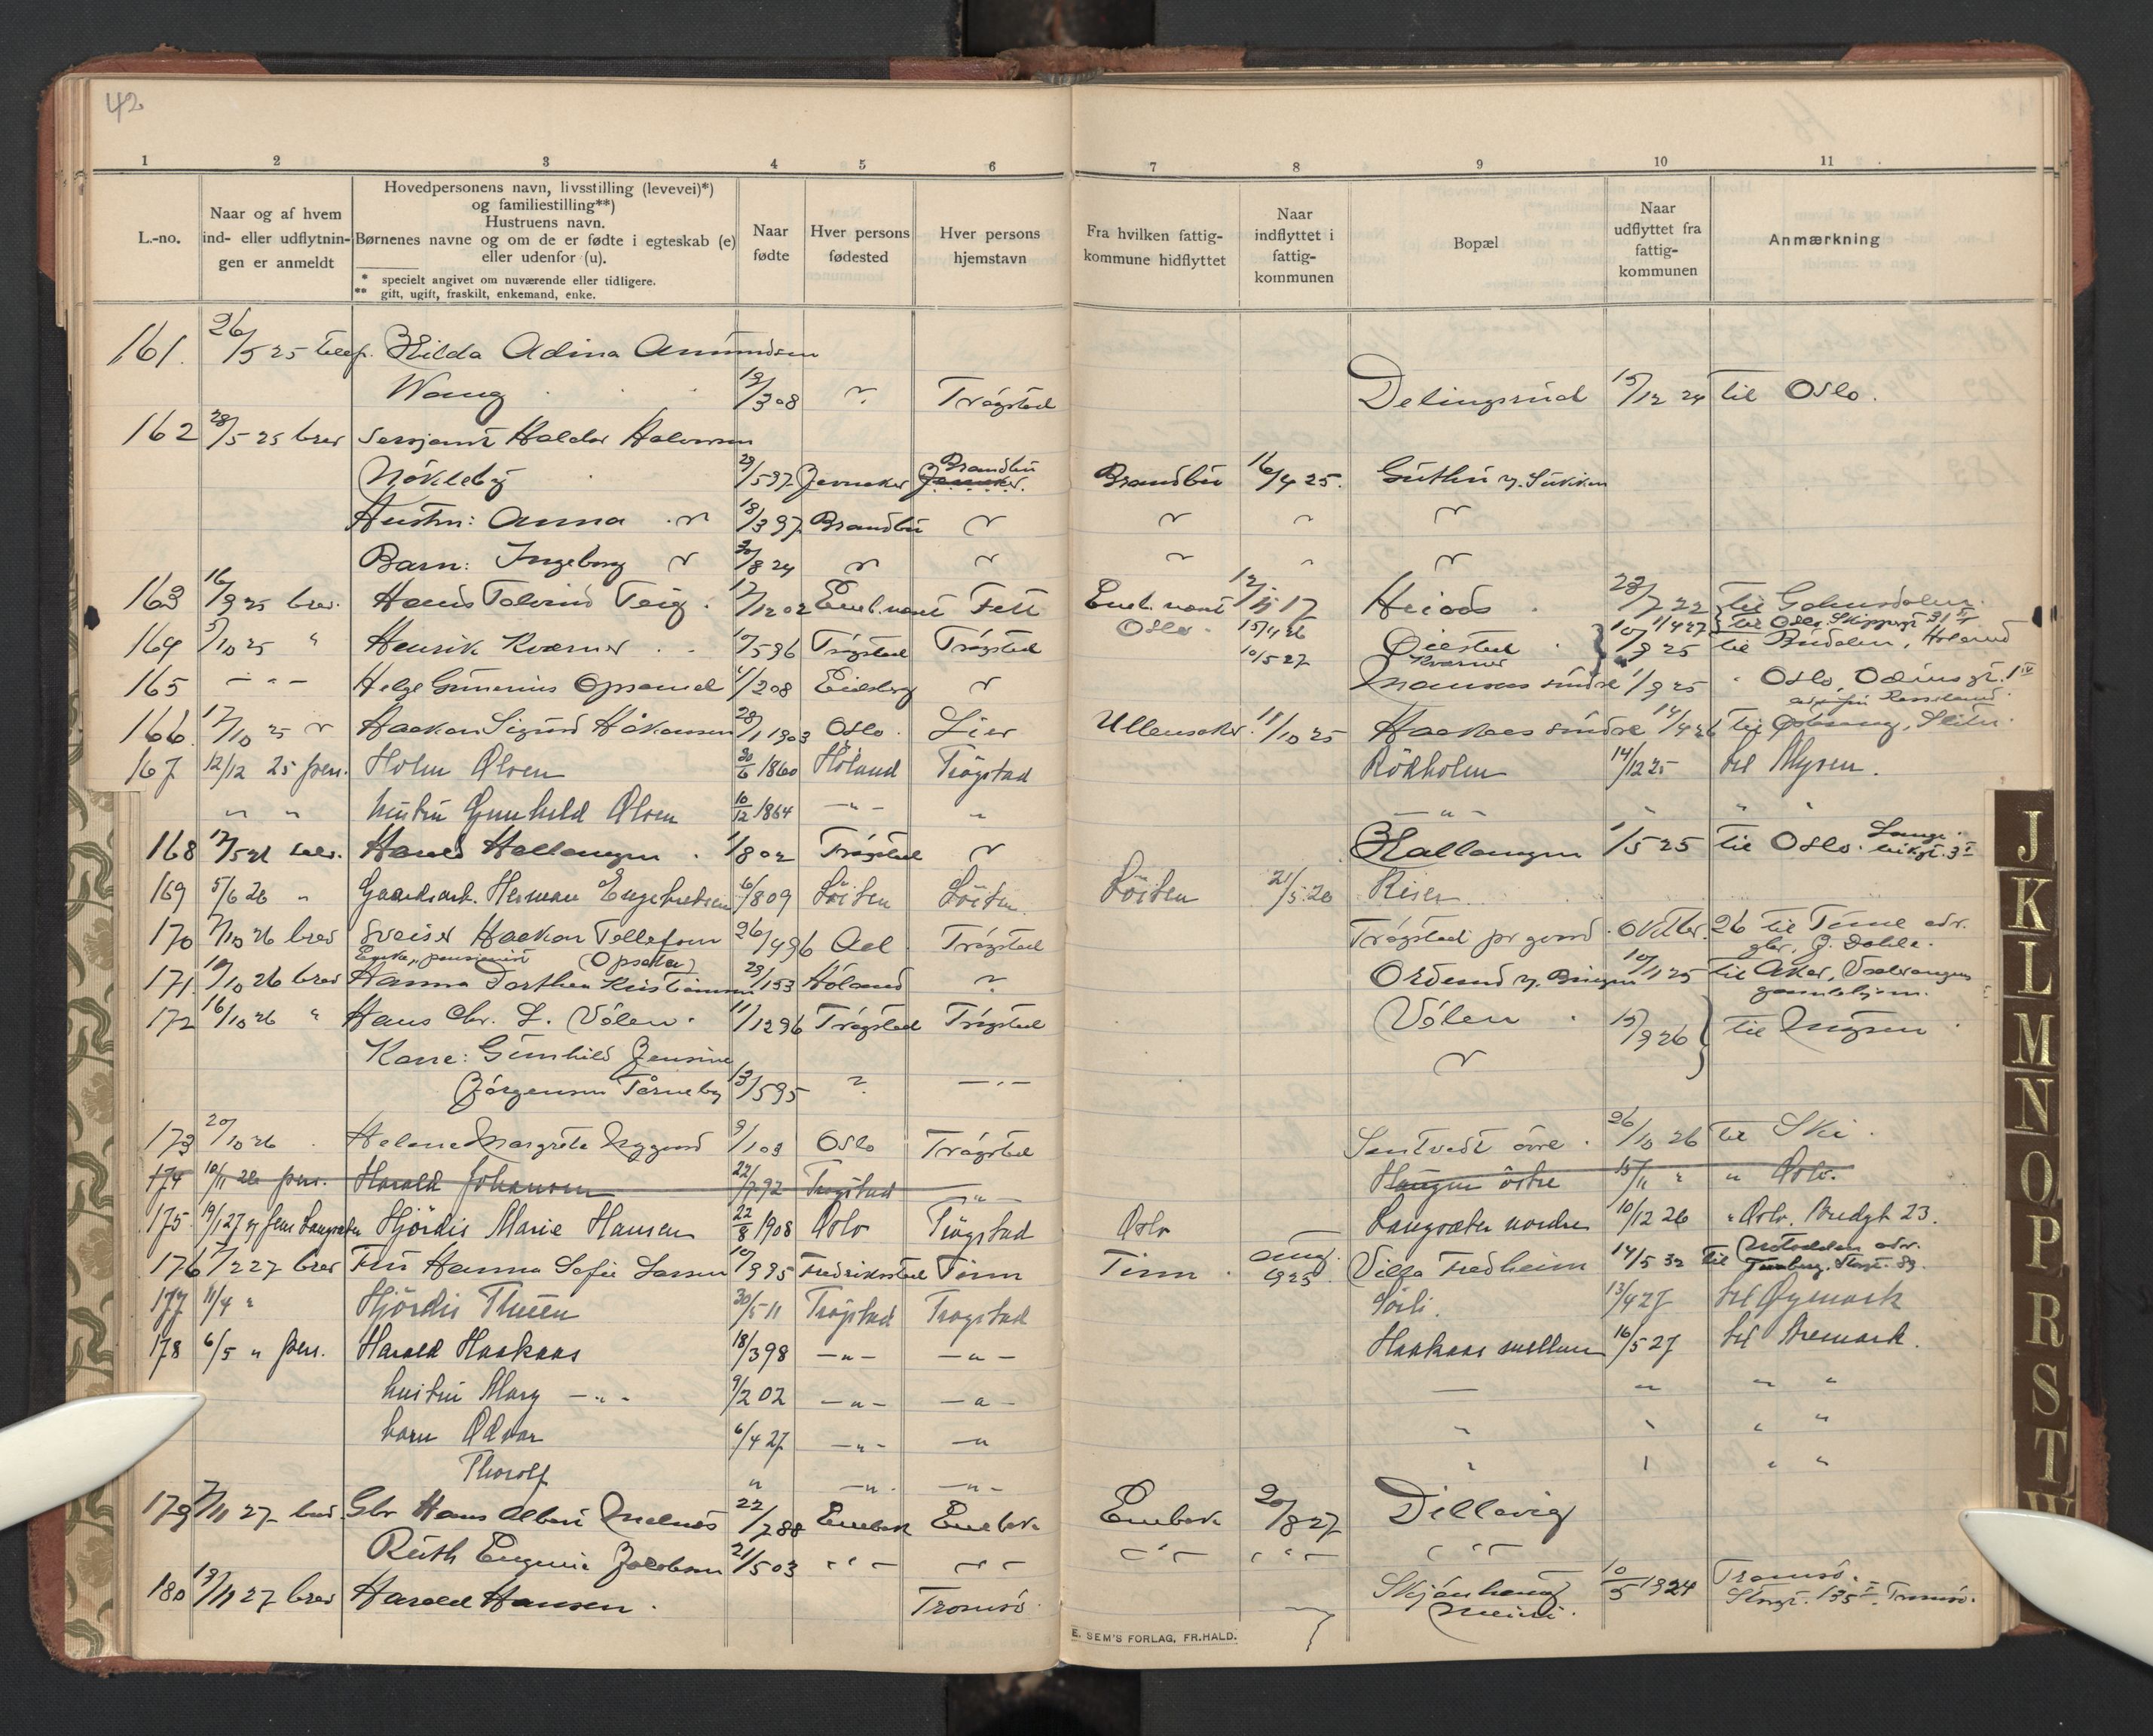 42
1 2 3 4 5 6 7 8 9 10 11
L.-no.
Naar og af hvem
ind- eller udflytnin-
gen er anmeldt
Hovedpersonens navn, livsstilling (levevei)*)
og familiestilling**)
Hustruens navn.
Børnenes navne og om de er fødte i egteskab (e)
eller udenfor (u).
* specielt angivet om nuværende eller tidligere.
** gift, ugift, fraskilt, enkemand, enke.
Naar
fødte
Hver persons
fødested
Hver persons
hjemstavn
Fra hvilken fattig-
kommune hidflyttet
Naar
indflyttet i
fattig-
kommunen
Bopæl
Naar
udflyttet fra
fattig-
kommunen
Anmærkning
161. 26/5 25 telef. Hilda Adina Amundsen
Wang 19/3 08 " Trøgstad Delingsrud 15/12 24 til Oslo.
162 28/5 25 brev Sersjant Haldor Halvorsen
Nökleby 29/5 97 Jevnaker Brandbu Brandbu 16/4 25.
Hustru: Anna " 18/3 97 Brandbu " " " "
Barn: Ingeborg " 30/8 24 " " " " "
163 16/9 25 brev. Hans Tolvind Teig. 17/12 02 Fett
164 5/10 25 " Henrik Kværner 10/5 96 Trøgstad Trøgstad Oslo 15/11 26 Øiestad 10/9 25
10/5 27 Kværner
165 - " - Helge Gunerius Opsand 4/2 08 Eidsberg " 1/9 25 " Oslo, Odinsgt. 1 IV
166 17/10 25 " Haakon Sigurd Håkonsen 28/1 1903 Oslo. Lier Ullensaker 11/10 25 Haakaas søndre 14/4 26 til
167 12/12 25 pers. Holm Olsen 20/6 1860 Höland Trögstad Rökholm 14/12 25 til Mysen.
" " hustru Gunhild Olsen 10/12 1864 - " - " - " - " " "
168 17/5 26 Harald Hallangen. 1/8 02 Trøgstad " Hallangen 1/5 25 til Oslo.
169 5/6 26 " Gaardsarb. Herman Engebretsen 6/8 09 Löiten Löiten Löiten 21/5 26 Riser
170 7/10 26 brev Sveiser Haakon Tellefsen 26/4 96 Aal Trøgstad Trøgstad prgård. Oktbr. 26 til Time adr.
(Opsaker) gbr. J. Dahle.
171 10/10 26 brev Hanna Dorthea Kristiansen 23/1 53 Höland " 10/11 25 til Aker,
gamlehjem.
172 16/10 26 " Hans Chr. L. Völen. 11/12 96 Trøgstad Trøgstad Völen 15/9 26 til Mysen
Kone: Gunhild Jensine "
Jörgensen Tørneby 13/5 95 " - " -
173 20/10 26 Helene Margrete Nygaard 9/1 03 Oslo Trøgstad Sentvedt övre. 26/10 26 til Ski.
174 10/11 26 pers. Harald Johansen 22/7 92 Trögstad - " - Haugen östre 15/11 " " Oslo.
175 19/1 27 v/ Jens Langsæter Hjördis Marie Hansen 22/8 1908 Oslo Trögstad Oslo — Langsæter nordre 10/12 26 " Oslo. Bredgt 23.
176 7/2 27 brev Fru Hanna Sofie Larsen 10/9 95 Fredrikstad Tinn Tinn. aug. 1925 Villa Fredheim 14/5 32 til Notodden adr.
177 11/4 " Hjördis Thuen 30/5 11 Trögstad Trögstad Sörli. 13/4 27 til Öymark
178 6/5 " pers. Harald Haakaas 18/3 98 - " - - " - Haakaas mellem 16/5 27 til Aremark.
hustru Mary - " - 9/2 02 - " - - " - — " " "
barn Odvar 6/4 27 - " - - " " " " "
Thorolf " - " - - " - " " " "
179 7/11 27 brev. Gbr Hans Albert Melnes 22/7 88 Enebak Enebak Enebak 20/8 27 Dillevig
Ruth Eugenie Jacobsen 21/5 03 " " " " "
180 19/11 27 brev Harald Hansen. Tromsö. Skjönhaug 10/5 1924 Tromsö.
Meieri. Storgt. 135 I. Tromsö.
E. SEM'S FORLAG, FR.HALD.
J
K
L
M
N
O
P
R
S
T
W